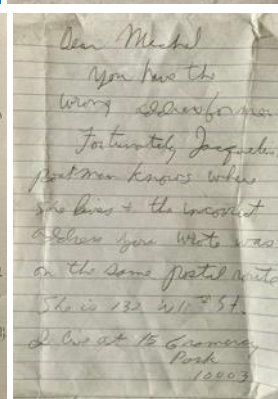 Dear Michel
you have the
wrong address for me.
Fortunately Jacqueline
postman knows where
she lives & the incorrect
address you wrote was
on the same postal route
She is 132 W 11th St.
I live at 15 Gramercy
Park
10003